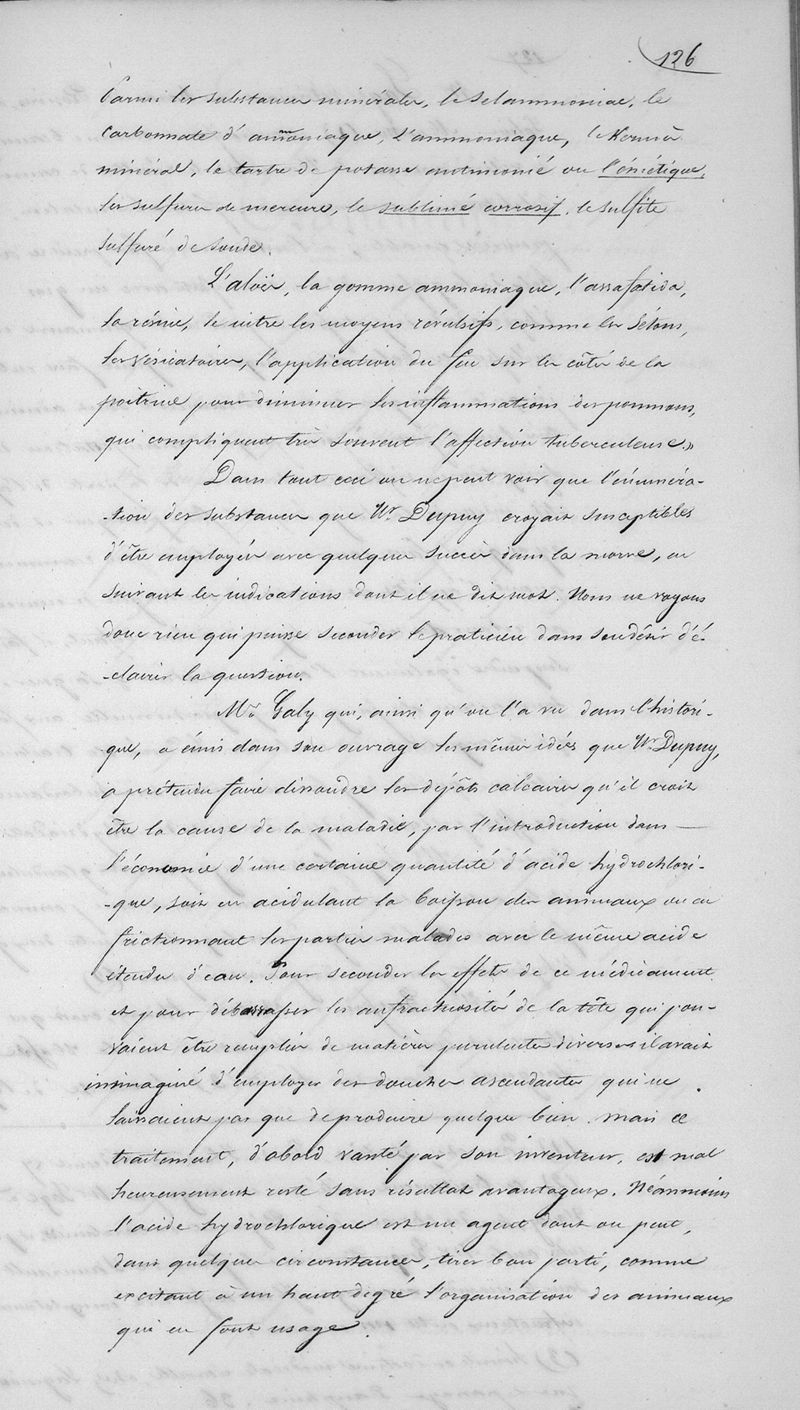 126
Parmi les substances minérales, le sel ammoniac, le
carbonnate d'ammoniaque, l'ammoniaque, le Kermès
minéral, le tartre de potasse antimonié ou l'émétique,
les sulfures de mercure, le sublimé corrosif, le sulfite
sulfuré de soude.
L'aloës, la gomme ammoniaque, l'assafœtida,
la résine, le nitre les moyens révulsifs, comme les Sétons,
les vésicatoires, l'application du feu sur les côtés de la
poitrine pour diminuer les inflammations des poumons,
qui compliquent très souvent l'affection tuberculeuse.»
Dans tout ceci on ne peut voir que l'énuméra-
-tion des substances que Mr Dupuy croyait susceptibles
d'être employées avec quelque succès dans la morve, ou
suivant les indications dont il ne dit mot. Nous ne voyons
donc rien qui puisse seconder le praticien dans son désir d'é-
-claircir la question.
Mr Galy qui, ainsi qu'on l'a vu dans l'histori-
que, a émis dans son ouvrage les mêmes idées que Mr Dupuy,
a prétendu faire dissoudre les dépôts calcaires qu'il croit
être la cause de la maladie, par l'introduction dans
l'économie d'une certaine quantité d'acide hydrochlori-
-que, soit en acidulant la boisson des animaux ou en
frictionnant les parties malades avec le même acide
étendu d'eau. Pour seconder les effets de ce médicament
et pour débarrasser les anfractuosités de la tête qui pou-
vaient être remplies de matières purulentes diverses il avait
immaginé d'employer des douches ascendantes qui ne
laissaient pas que de produire quelque bien. mais ce
traitement, d'abord vanté par son inventeur, est mal
heureusement resté sans résultat avantageux. Néanmoins
l'acide hydrochlorique est un agent dont on peut,
dans quelques circonstances, tirer bon parti, comme
excitant à un haut degré l'organisation des animaux
qui en font usage.